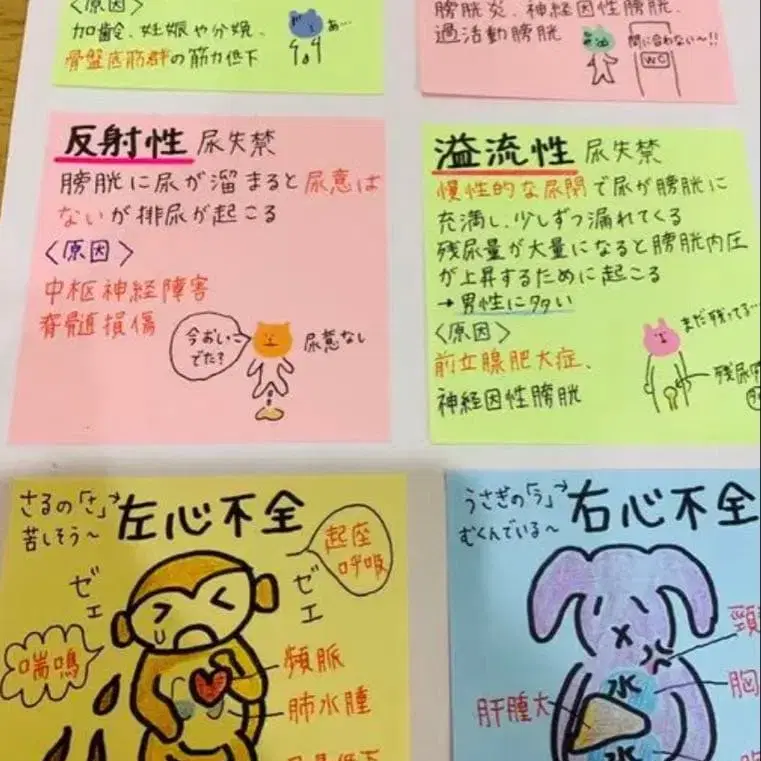 〈原因〉
加齢、妊娠や分娩、
骨盤底筋群の筋力低下
あ…
膀胱炎、神経因性膀胱、
過活動膀胱
間に合わない〜!!
WC
反射性 尿失禁
膀胱に尿が溜まると尿意は
ないが排尿が起こる
〈原因〉
中枢神経障害
脊髄損傷
今おしっこ
でた?
尿意なし
溢流性 尿失禁
慢性的な尿閉で尿が膀胱に
充満し、少しずつ漏れてくる
残尿量が大量になると膀胱内圧
が上昇するために起こる
→男性に多い
〈原因〉
前立腺肥大症、
神経因性膀胱
まだ残ってる…
残尿
さるの「さ」→
苦しそう〜
左心不全
起座
呼吸
ゼェ
ゼェ
喘鳴
頻脈
肺水腫
うさぎの「う」→
むくんでいる〜
右心不全
頸
水
胸
肝腫大
水